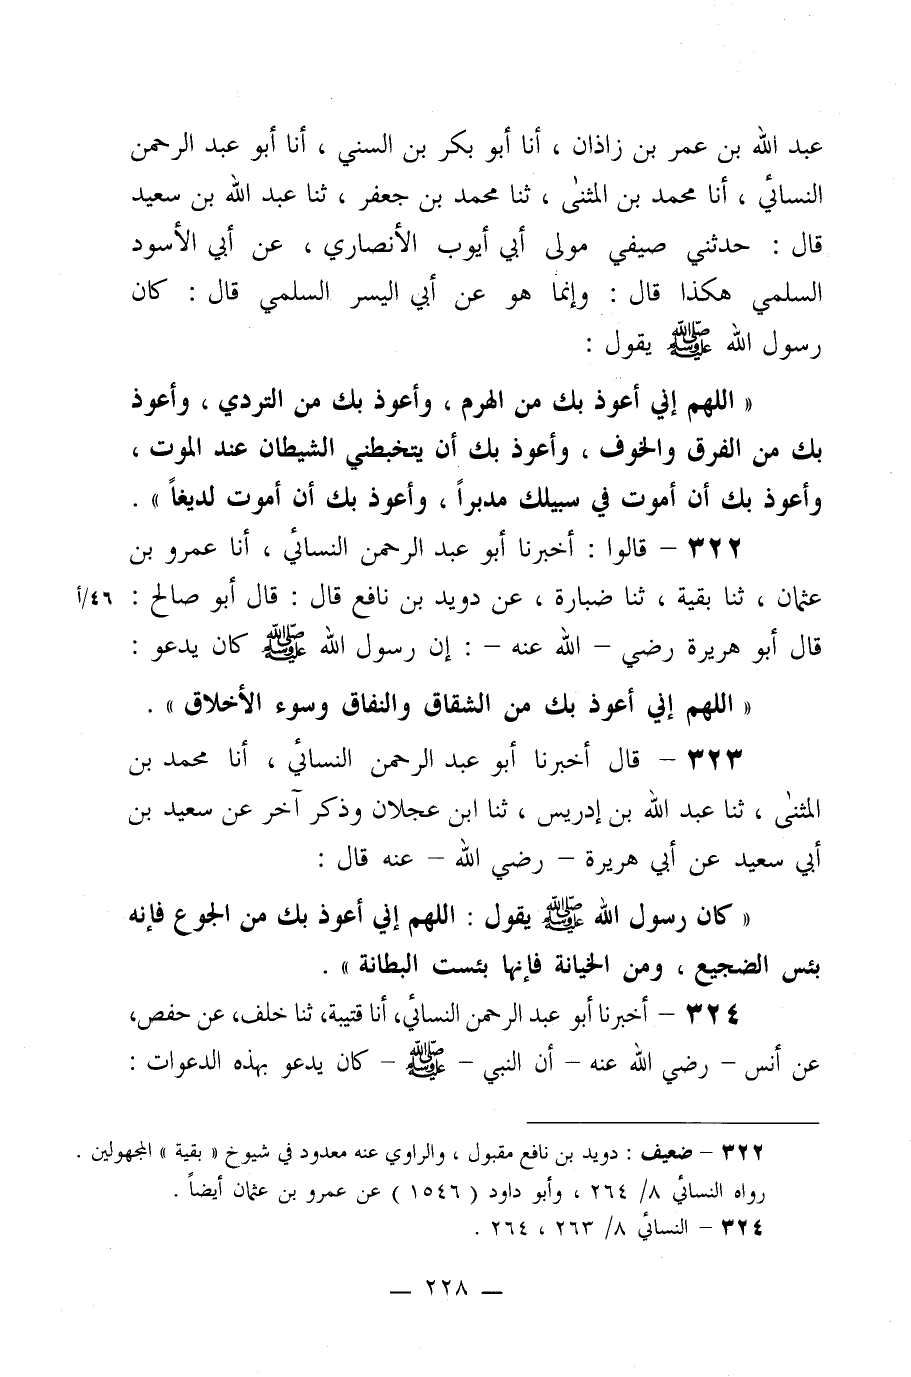 عبد الله بن عمر بن زاذان ، أنا أبو بكر بن السني ، أنا أبو عبد الرحمن
النسائي ، أنا محمد بن المثنى ، ثنا محمد بن جعفر ، ثنا عبد الله بن سعيد
قال : حدثني صيفي مولى أبي أيوب الأنصاري ، عن أبي الأسود
السلمي هكذا قال : وإنما هو عن أبي اليسر السلمي قال : كان
رسول الله ﷺ يقول :
« اللهم إني أعوذ بك من الهرم ، وأعوذ بك من التردي ، وأعوذ
بك من الفرق والخوف ، وأعوذ بك أن يتخبطني الشيطان عند الموت ،
وأعوذ بك أن أموت في سبيلك مدبراً ، وأعوذ بك أن أموت لديغاً » .
٣٢٢ – قالوا : أخبرنا أبو عبد الرحمن النسائي ، أنا عمرو بن
عثمان ، ثنا بقية ، ثنا ضبارة ، عن دويد بن نافع قال : قال أبو صالح : ٤٦/أ
قال أبو هريرة رضي – الله عنه – : إن رسول الله ﷺ كان يدعو :
« اللهم إني أعوذ بك من الشقاق والنفاق وسوء الأخلاق » .
٣٢٣ – قال أخبرنا أبو عبد الرحمن النسائي ، أنا محمد بن
المثنى ، ثنا عبد الله بن إدريس ، ثنا ابن عجلان وذكر آخر عن سعيد بن
أبي سعيد عن أبي هريرة – رضي الله – عنه قال :
« كان رسول الله ﷺ يقول : اللهم إني أعوذ بك من الجوع فإنه
بئس الضجيع ، ومن الخيانة فإنها بئست البطانة » .
٣٢٤ – أخبرنا أبو عبد الرحمن النسائي، أنا قتيبة، ثنا خلف، عن حفص،
عن أنس – رضي الله عنه – أن النبي – ﷺ – كان يدعو بهذه الدعوات :
٣٢٢ – ضعيف : دويد بن نافع مقبول ، والراوي عنه معدود في شيوخ « بقية » المجهولين .
رواه النسائي ٨/ ٢٦٤ ، وأبو داود ( ١٥٤٦ ) عن عمرو بن عثمان أيضاً .
٣٢٤ – النسائي ٨/ ٢٦٣ ، ٢٦٤ .
— ٢٢٨ —